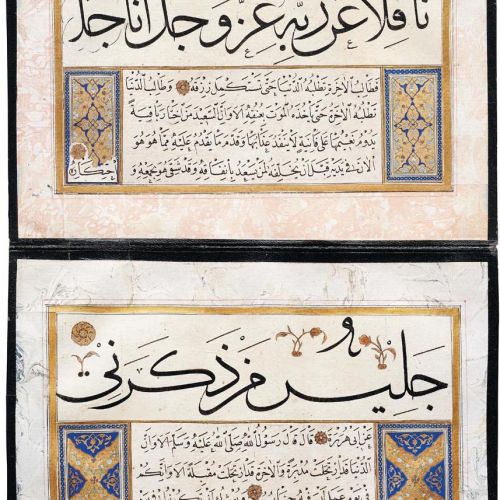 نا قلا عن ربه عز وجل انا جل
فطالب الاخرة تطلبه الدنيا حتى يستكمل رزقه وطالب الدنيا
تطلبه الاخرة حتى ياخذه الموت بعنقه الا وان السعيد من اختار باقية
يدوم نعيمها على فانية لا ينفد عذابها وقدم ما يقدم عليه مما هو هو
الان في يديه قبل ان يخلفه لمن يسعد بانفاقه وقد شقي هو بجمعه و
احتكاره
و
جليس من ذكرني
عن ابي هريرة قال قال رسول الله صلى الله عليه وسلم الا وان
الدنيا قد ارتحلت مدبرة والاخرة قد ارتحلت مقبلة الا وانكم